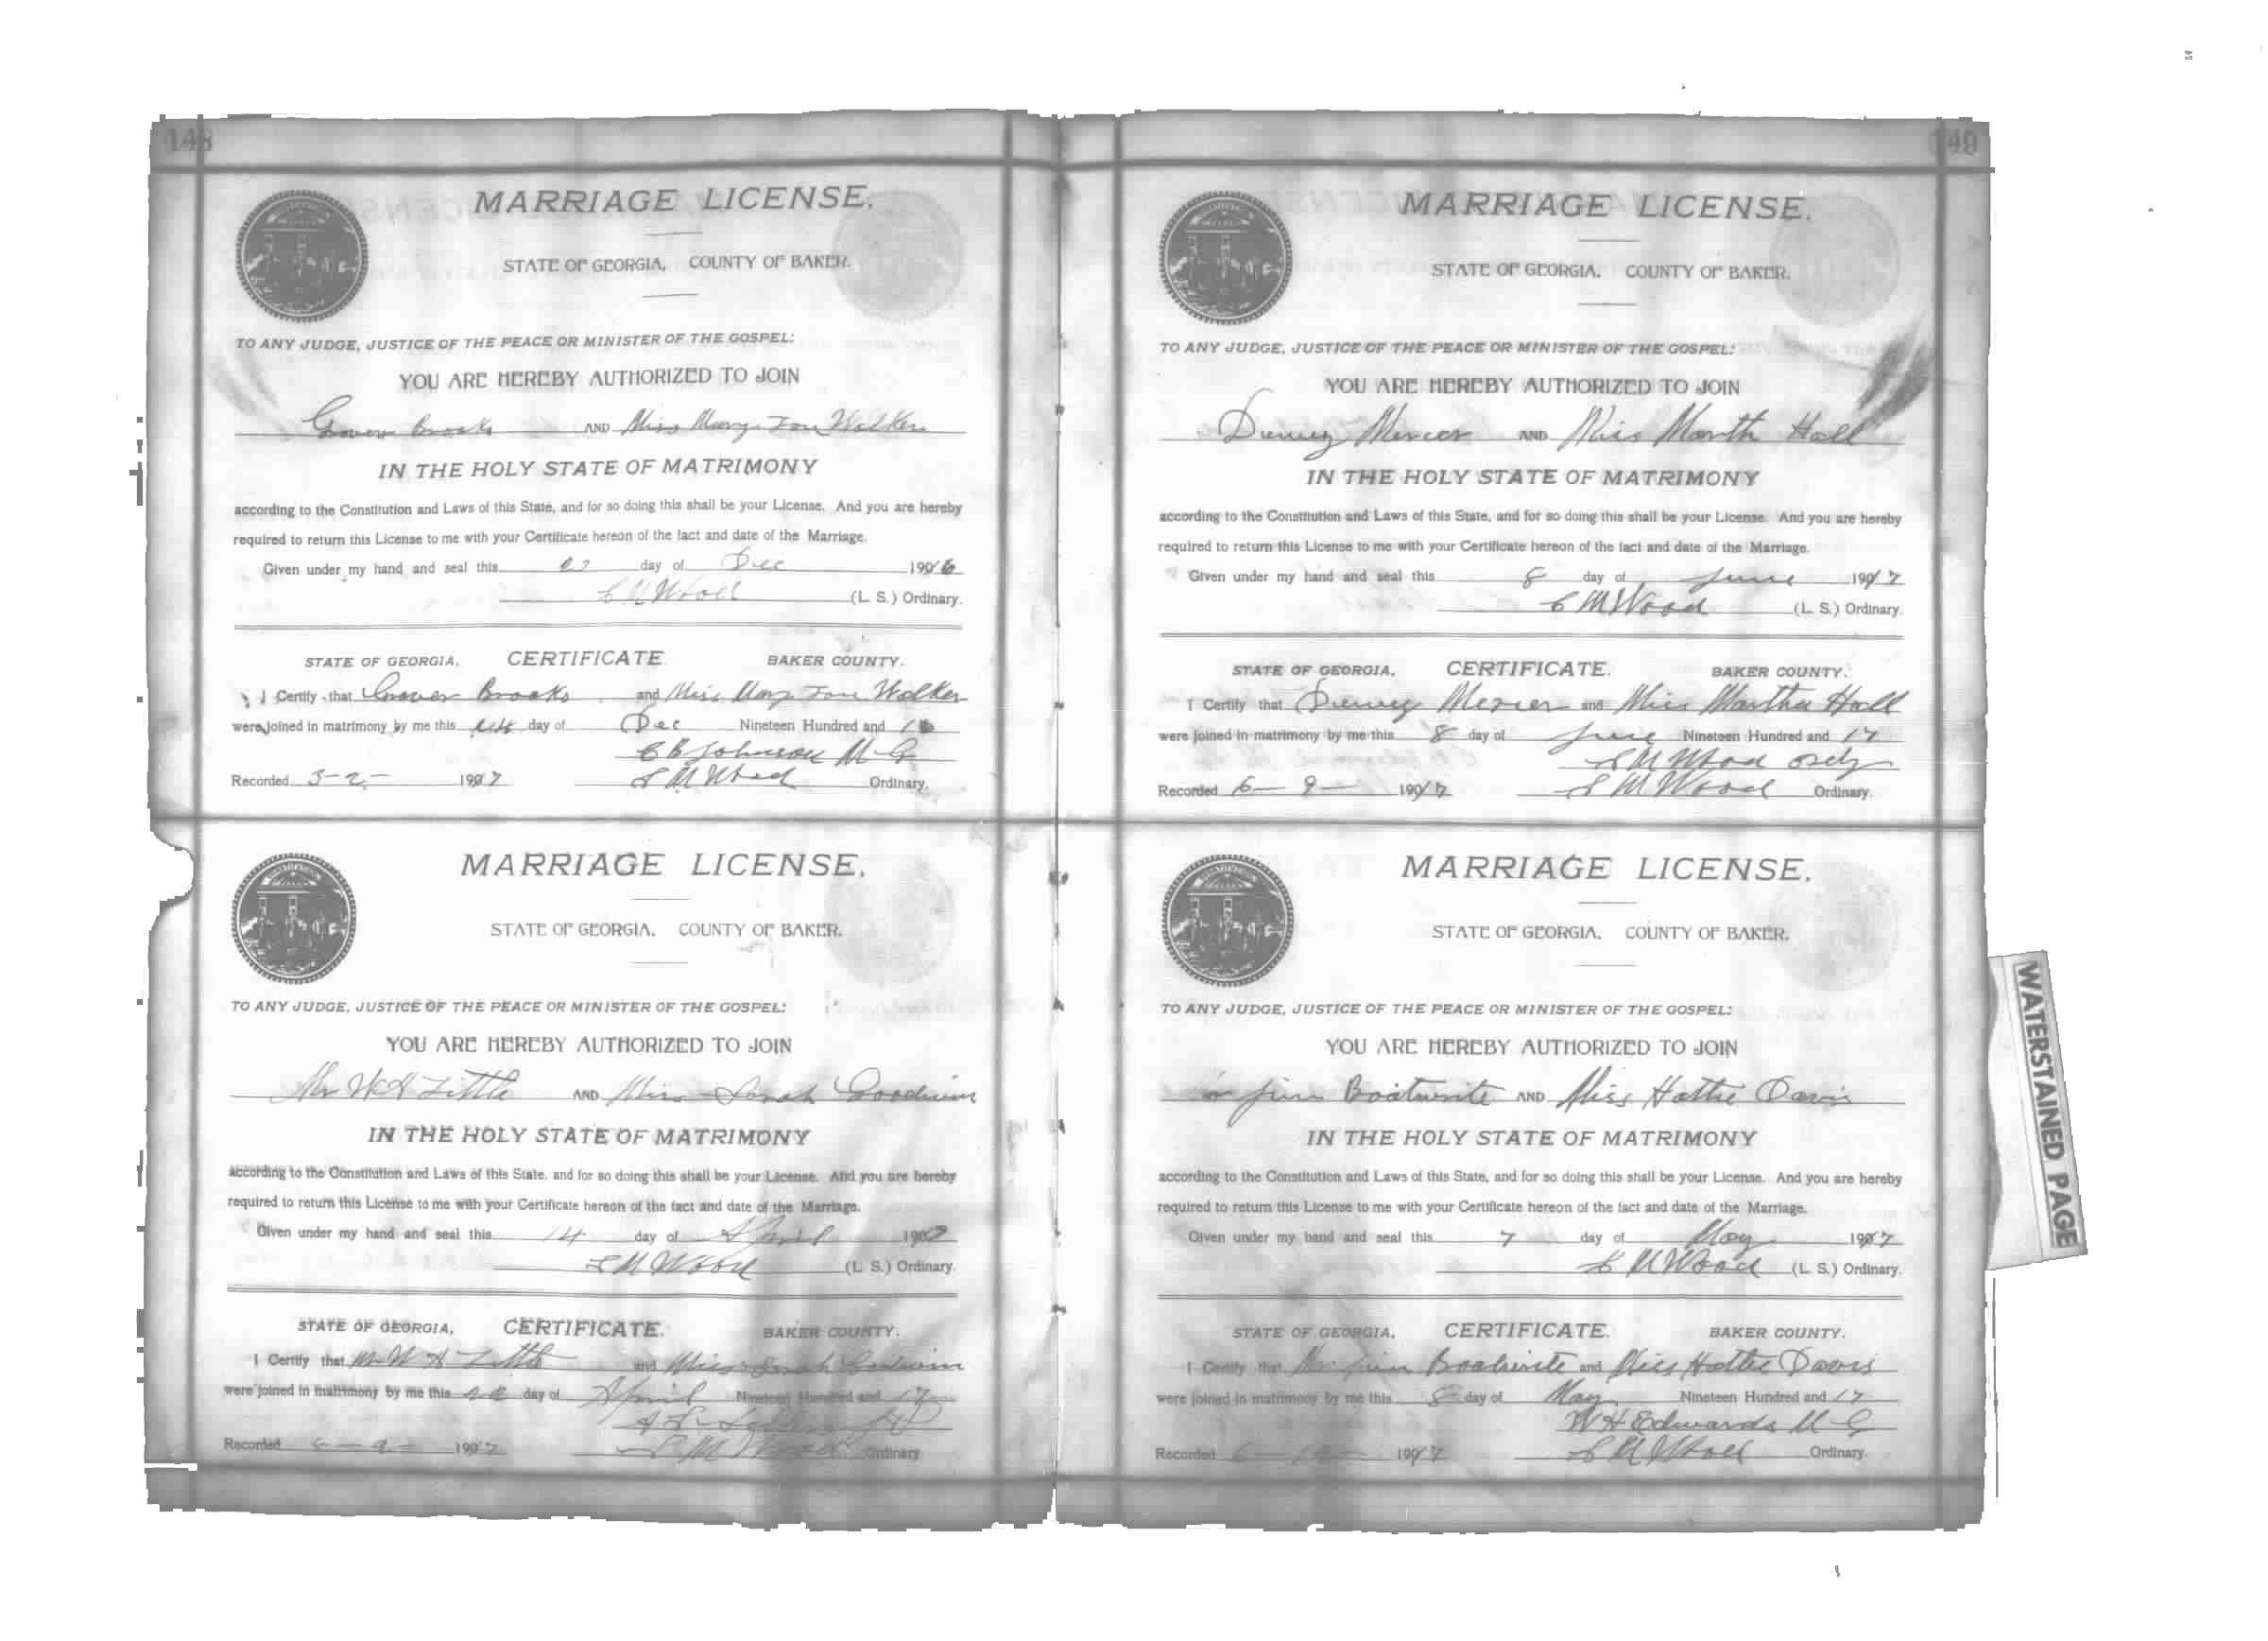 148
MARRIAGE LICENSE.
STATE OF GEORGIA, COUNTY OF BAKER.
TO ANY JUDGE, JUSTICE OF THE PEACE OR MINISTER OF THE GOSPEL:
YOU ARE HEREBY AUTHORIZED TO JOIN
Grover Brooks AND Miss Mary Walker
IN THE HOLY STATE OF MATRIMONY
according to the Constitution and Laws of this State, and for so doing this shall be your License. And you are hereby
required to return this License to me with your Certificate hereon of the fact and date of the Marriage.
Given under my hand and seal this day of Dec 1916
Wood (L. S.) Ordinary.
STATE OF GEORGIA, CERTIFICATE. BAKER COUNTY.
I Certify that Grover Brooks and Miss Mary Walker
were joined in matrimony by me this day of Dec Nineteen Hundred and 16
Johnson M G
Recorded 3-2- 1917 M Wood Ordinary.
MARRIAGE LICENSE.
STATE OF GEORGIA, COUNTY OF BAKER.
TO ANY JUDGE, JUSTICE OF THE PEACE OR MINISTER OF THE GOSPEL:
YOU ARE HEREBY AUTHORIZED TO JOIN
Mr W H Little AND Miss Sarah Goodwin
IN THE HOLY STATE OF MATRIMONY
according to the Constitution and Laws of this State, and for so doing this shall be your License. And you are hereby
required to return this License to me with your Certificate hereon of the fact and date of the Marriage.
Given under my hand and seal this 14 day of April 1917
M Wood (L. S.) Ordinary.
STATE OF GEORGIA, CERTIFICATE. BAKER COUNTY.
I Certify that Mr W H Little and Miss Sarah Goodwin
were joined in matrimony by me this day of April Nineteen Hundred and 17
Recorded 1917 M Wood Ordinary
149
MARRIAGE LICENSE.
STATE OF GEORGIA, COUNTY OF BAKER.
TO ANY JUDGE, JUSTICE OF THE PEACE OR MINISTER OF THE GOSPEL:
YOU ARE HEREBY AUTHORIZED TO JOIN
Mercer AND Miss Marth Hall
IN THE HOLY STATE OF MATRIMONY
according to the Constitution and Laws of this State, and for so doing this shall be your License. And you are hereby
required to return this License to me with your Certificate hereon of the fact and date of the Marriage.
Given under my hand and seal this 8 day of June 1917
M Wood (L. S.) Ordinary.
STATE OF GEORGIA, CERTIFICATE. BAKER COUNTY.
I Certify that Mercer and Miss Martha Hall
were joined in matrimony by me this 8 day of June Nineteen Hundred and 17
M Wood Ordy
Recorded 6-9- 1917 M Wood Ordinary.
MARRIAGE LICENSE.
STATE OF GEORGIA, COUNTY OF BAKER.
TO ANY JUDGE, JUSTICE OF THE PEACE OR MINISTER OF THE GOSPEL:
YOU ARE HEREBY AUTHORIZED TO JOIN
Jim Boatwrite AND Miss Hattie Davis
IN THE HOLY STATE OF MATRIMONY
according to the Constitution and Laws of this State, and for so doing this shall be your License. And you are hereby
required to return this License to me with your Certificate hereon of the fact and date of the Marriage.
Given under my hand and seal this 7 day of May 1917
M Wood (L. S.) Ordinary.
STATE OF GEORGIA, CERTIFICATE. BAKER COUNTY.
I Certify that Mr Jim Boatwrite and Miss Hattie Davis
were joined in matrimony by me this 8 day of May Nineteen Hundred and 17
W H Edwards M G
Recorded 1917 M Wood Ordinary.
WATERSTAINED PAGE